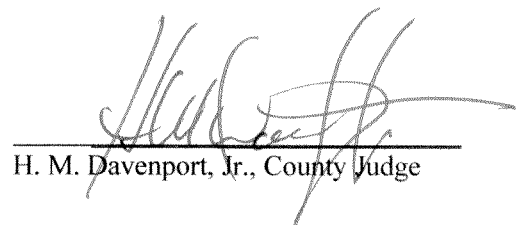 H. M. Davenport, Jr., County Judge